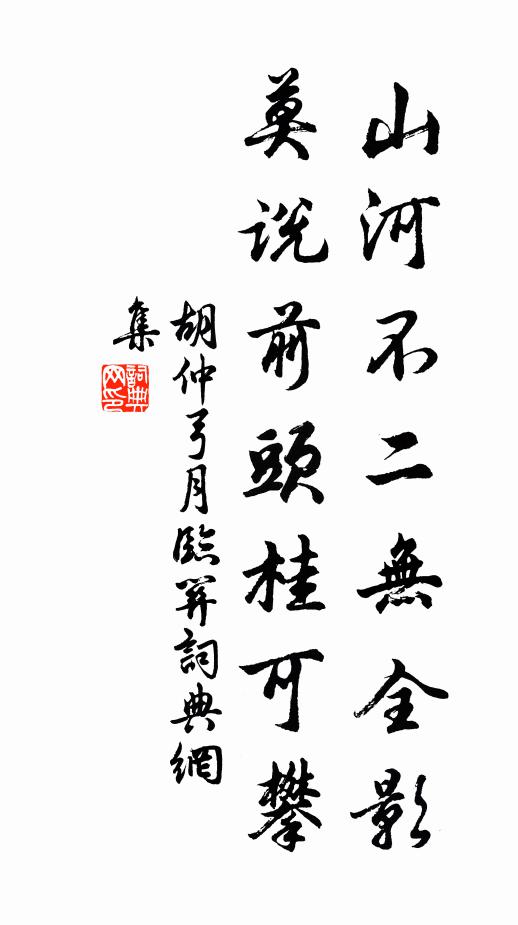 山河不二無全影
莫説前頭桂可攀
胡仲弓月臨笄詞典網
集
詞典
网印